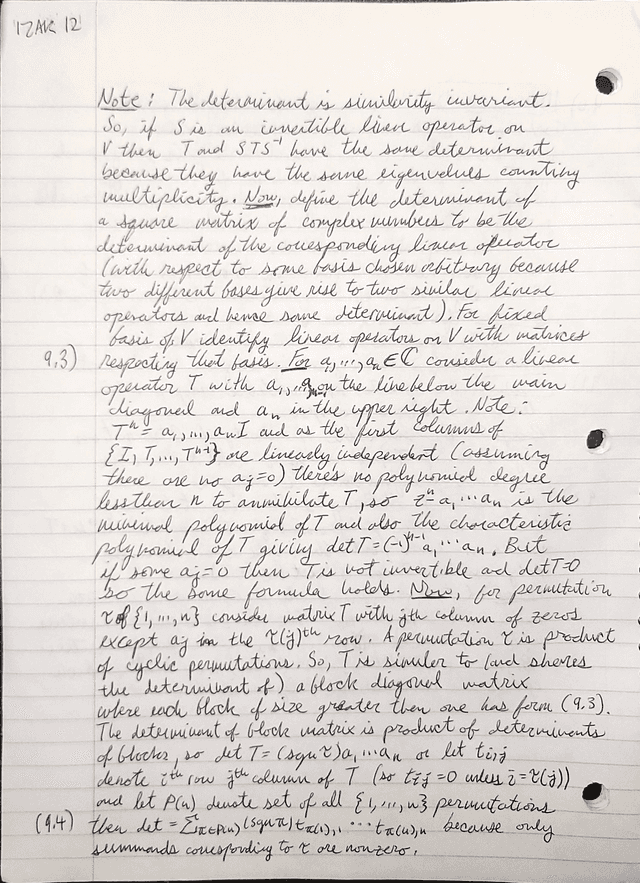 17AK 12
Note: The determinant is similarity invariant.
So, if S is an invertible linear operator on
V then T and STS⁻¹ have the same determinant
because they have the same eigenvalues counting
multiplicity. Now, define the determinant of
a square matrix of complex numbers to be the
determinant of the corresponding linear operator
(with respect to some basis chosen arbitrary because
two different bases give rise to two similar linear
operators and hence same determinant). For fixed
basis of V identify linear operators on V with matrices
9.3) respecting that basis. For a₁,...,aₙ∈ℂ consider a linear
operator T with a₁,...,aₙ₋₁ on the line below the main
diagonal and aₙ in the upper right. Note:
Tⁿ = a₁,...,aₙI and as the first columns of
{I,T,...,Tⁿ⁻¹} are linearly independent (assuming
there are no aⱼ=0) there's no polynomial degree
less than n to annihilate T, so zⁿ-a₁...aₙ is the
minimal polynomial of T and also the characteristic
polynomial of T giving det T = (-1)ⁿ⁻¹a₁...aₙ. But
if some aⱼ=0 then T is not invertible and det T=0
so the same formula holds. Now, for permutation
τ of {1,...,n} consider matrix T with jth column of zeros
except aⱼ in the τ(j)ᵗʰ row. A permutation τ is product
of cyclic permutations. So, T is similar to (and shares
the determinant of) a block diagonal matrix
where each block of size greater then one has form (9.3).
The determinant of block matrix is product of determinants
of blocks, so det T = (sgn τ)a₁...aₙ or let tᵢ,ⱼ
denote iᵗʰ row jᵗʰ column of T (so tᵢ,ⱼ = 0 unless i = τ(j))
and let P(n) denote set of all {1,...,n} permutations
(9.4) then det = Σπ∈P(n) (sgn π) tπ(1),1 ... tπ(n),n because only
summands corresponding to τ are nonzero.